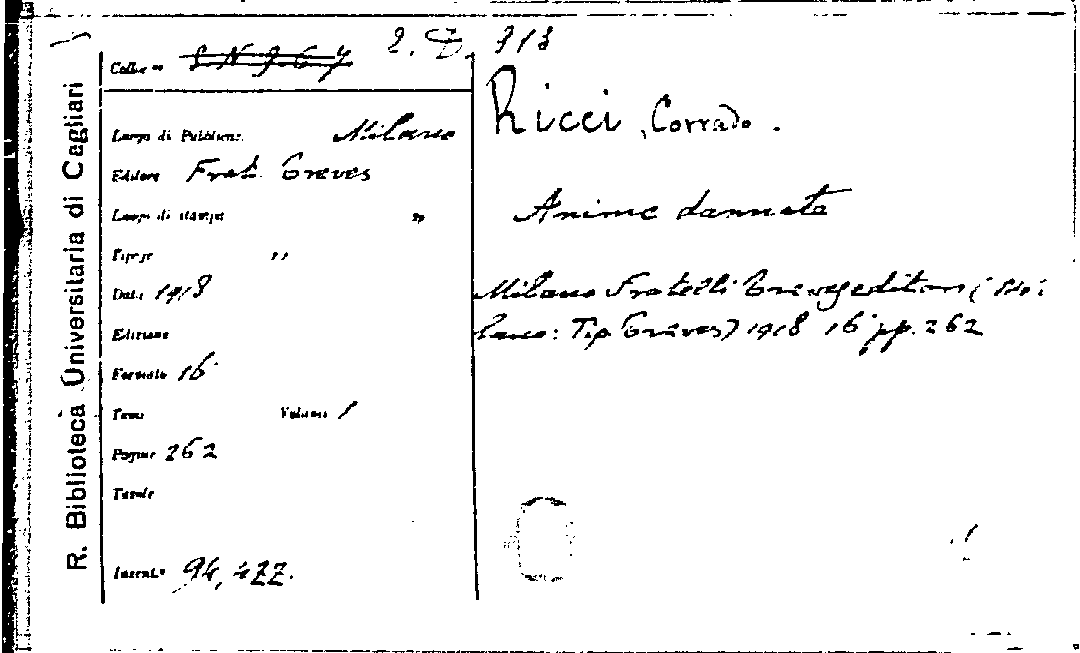 R. Biblioteca Universitaria di Cagliari
Colloc.ne S.N.9.64 2. D. 313
Luogo di Pubblicaz. Milano
Editore Frat. Treves
Luogo di stampa "
Tipogr. "
Data 1918
Edizione
Formato 16°
Tomi Volumi 1
Pagine 262
Tavole
Invent.° 94,477.
Ricci, Corrado.
Anime dannate
Milano Fratelli Treves editori (Mi-
lano: Tip Treves) 1918 16° pp. 262